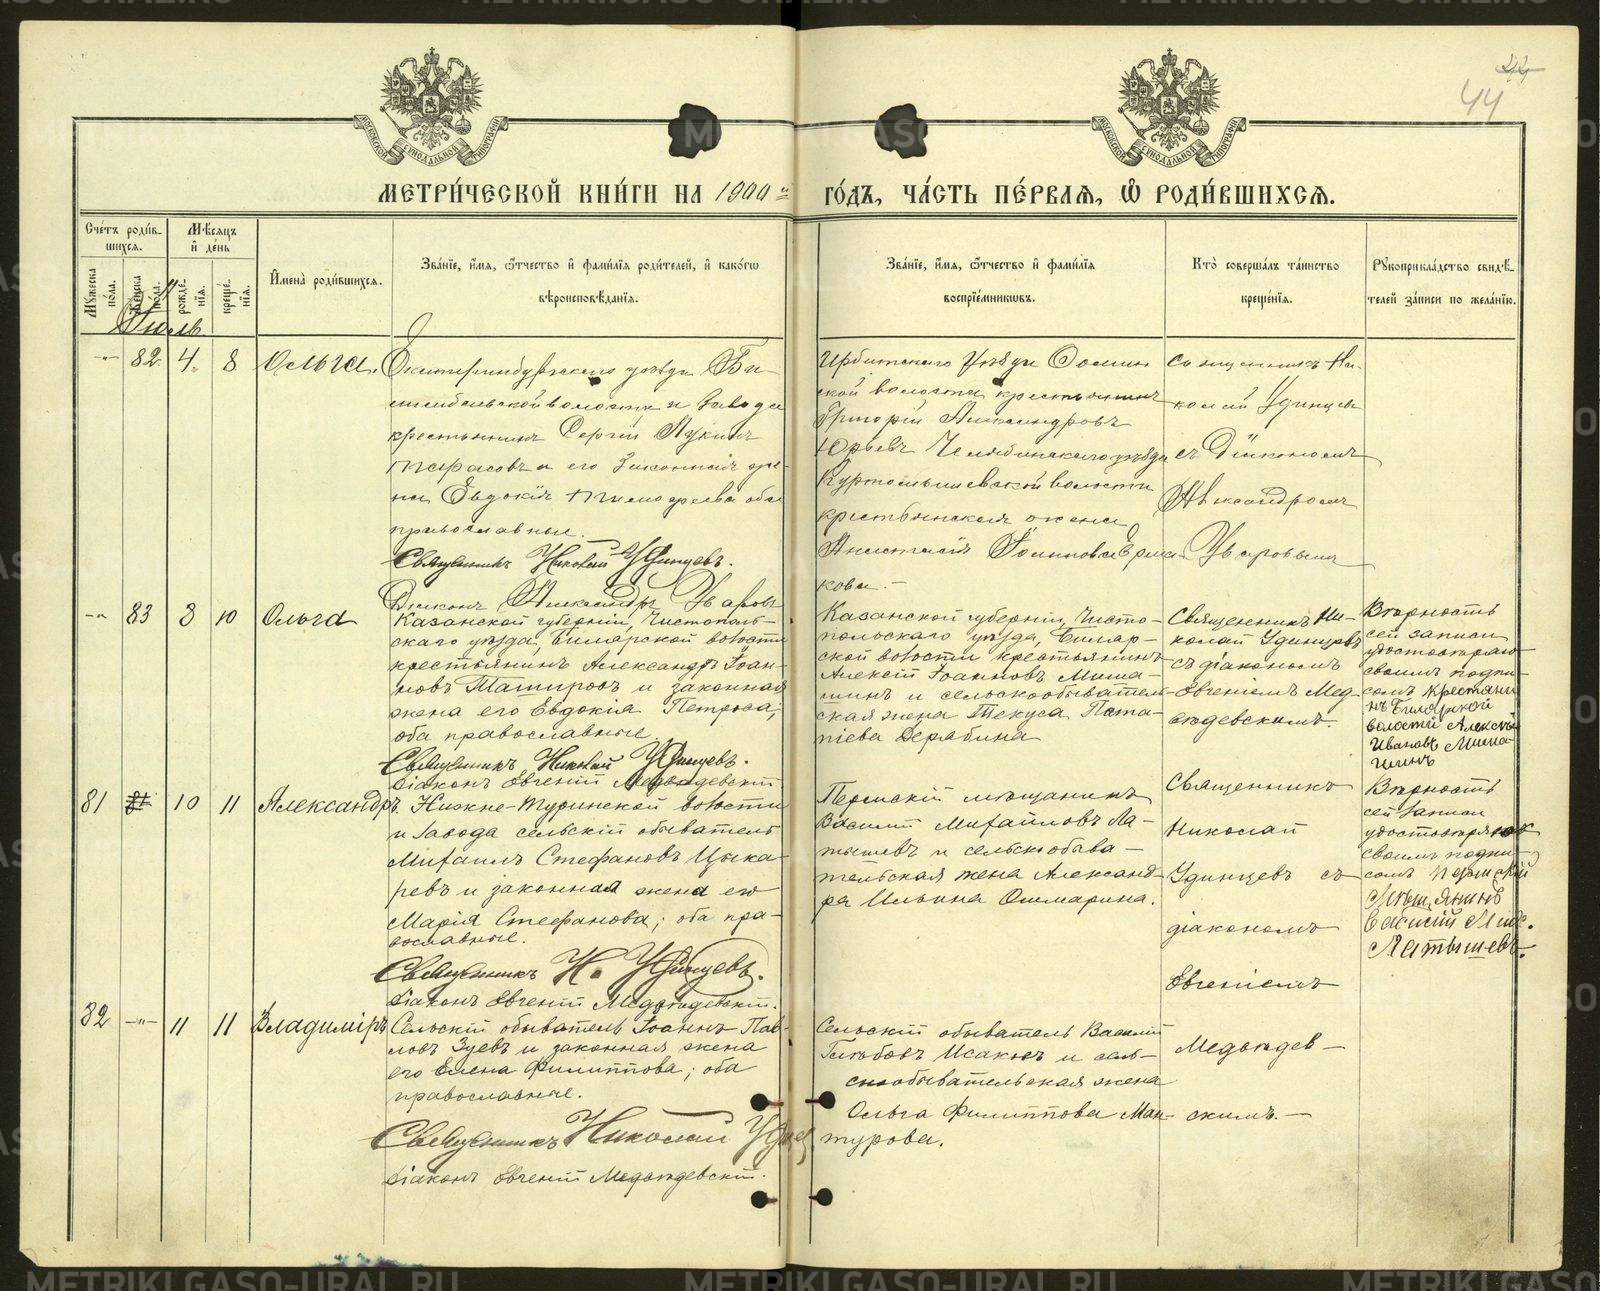 44
МОСКОВСКОЙ СѴНОДАЛЬНОЙ ТИПОГРАФІИ
МОСКОВСКОЙ СѴНОДАЛЬНОЙ ТИПОГРАФІИ
МЕТРИ́ЧЕСКОЙ КНИ́ГИ НА 1900 й ГО́ДЪ, ЧА́СТЬ ПЕ́РВАѦ, Ѡ РОДИ́ВШИХСѦ.
Сче́тъ роди́в-
шихся.
Мѣ́сяцъ
и́ де́нь
Мꙋжеска по́ла.
Женска по́ла.
рожде́-
нїѧ.
креще́-
нїѧ.
И҆мена̀ роди́вшихся.
Зва́нїе, и҆́мѧ, ѻ҆́тчество и҆ фами́лїѧ роди́телей, и҆ како́гѡ
вѣроисповѣ́данїѧ.
Зва́нїе, и҆́мѧ, ѻ҆́тчество и҆ фами́лїѧ
воспрїе́мникѡвъ.
Кто̀ соверша́лъ та́инство
креще́нїѧ.
Рꙋкоприкла́дство свидѣ́-
телей за́писи по жела́нїю.
Іюль
-"- 82 4. 8 Ольга. Екатеринбургскаго уѣзда Би-
лимбаевской волости и завода
крестьянинъ Сергій Лукинъ
Тарасовъ и его законная же-
на Евдокія Тимофеева оба
православные.
Священникъ Николай Удинцевъ.
Діаконъ Александръ Уваровъ
Ирбитскаго уѣзда
ской волости крестьянинъ
Григорій Александровъ
Юрьевъ Челябинскаго уѣзда
волости
крестьянская жена
Анастасія
кова. -
Священникъ Ни-
колай Удинцевъ
съ Діакономъ
Александромъ
Уваровымъ
-"- 83 8 10 Ольга Казанской губерніи, Чистополь-
скаго уѣзда, Билярской волости
крестьянинъ Александръ Іоан-
новъ и законная
жена его Евдокія Петрова;
оба православные.
Священникъ Николай Удинцевъ.
Діаконъ Евгеній Медвѣдевскій
Казанской губерніи, Чисто-
польскаго уѣзда, Биляр-
ской волости крестьянинъ
Алексій Іоанновъ Миша-
шинъ и сельскообыватель-
ская жена Текуса Пота-
піева Дерябина
Священникъ Ни-
колай Удинцевъ
съ діакономъ
Евгеніемъ Мед-
вѣдевскимъ.
Вѣрность
сей записи
удостовѣряю
своимъ подпи-
сомъ крестьяни-
нъ Билярской
волости Алексѣй
Ивановъ Миша-
шинъ
81 10 11 Александръ. Нижне-Туринской волости
и завода сельскій обыватель
Михаилъ Стефановъ Цыка-
ревъ и законная жена его
Марія Стефанова; оба пра-
вославные.
Священникъ Н. Удинцевъ.
Діаконъ Евгеній Медвѣдевскій.
Пермскій мѣщанинъ
Василій Михайловъ Ла-
тышевъ и сельскообыва-
тельская жена Александ-
ра Ильина Ошмарина.
Священникъ
Николай
Удинцевъ съ
діакономъ
Евгеніемъ
Медвѣдев-
скимъ. -
Вѣрность
сей записи
удостовѣряю
своимъ подпи-
сомъ Пермскій
Мѣщанинъ
Василій Мих.
Латышевъ.
82 -"- 11 11 Владиміръ Сельскій обыватель Іоаннъ Пав-
ловъ Зуевъ и законная жена
его Елена Филиппова; оба
православные.
Священникъ Николай Удинцевъ
Діаконъ Евгеній Медвѣдевскій.
Сельскій обыватель Василій
Глѣбовъ Исаковъ и сель-
скообывательская жена
Ольга Филиппова Ман-
турова.
METRIKI.GASO-URAL.RU